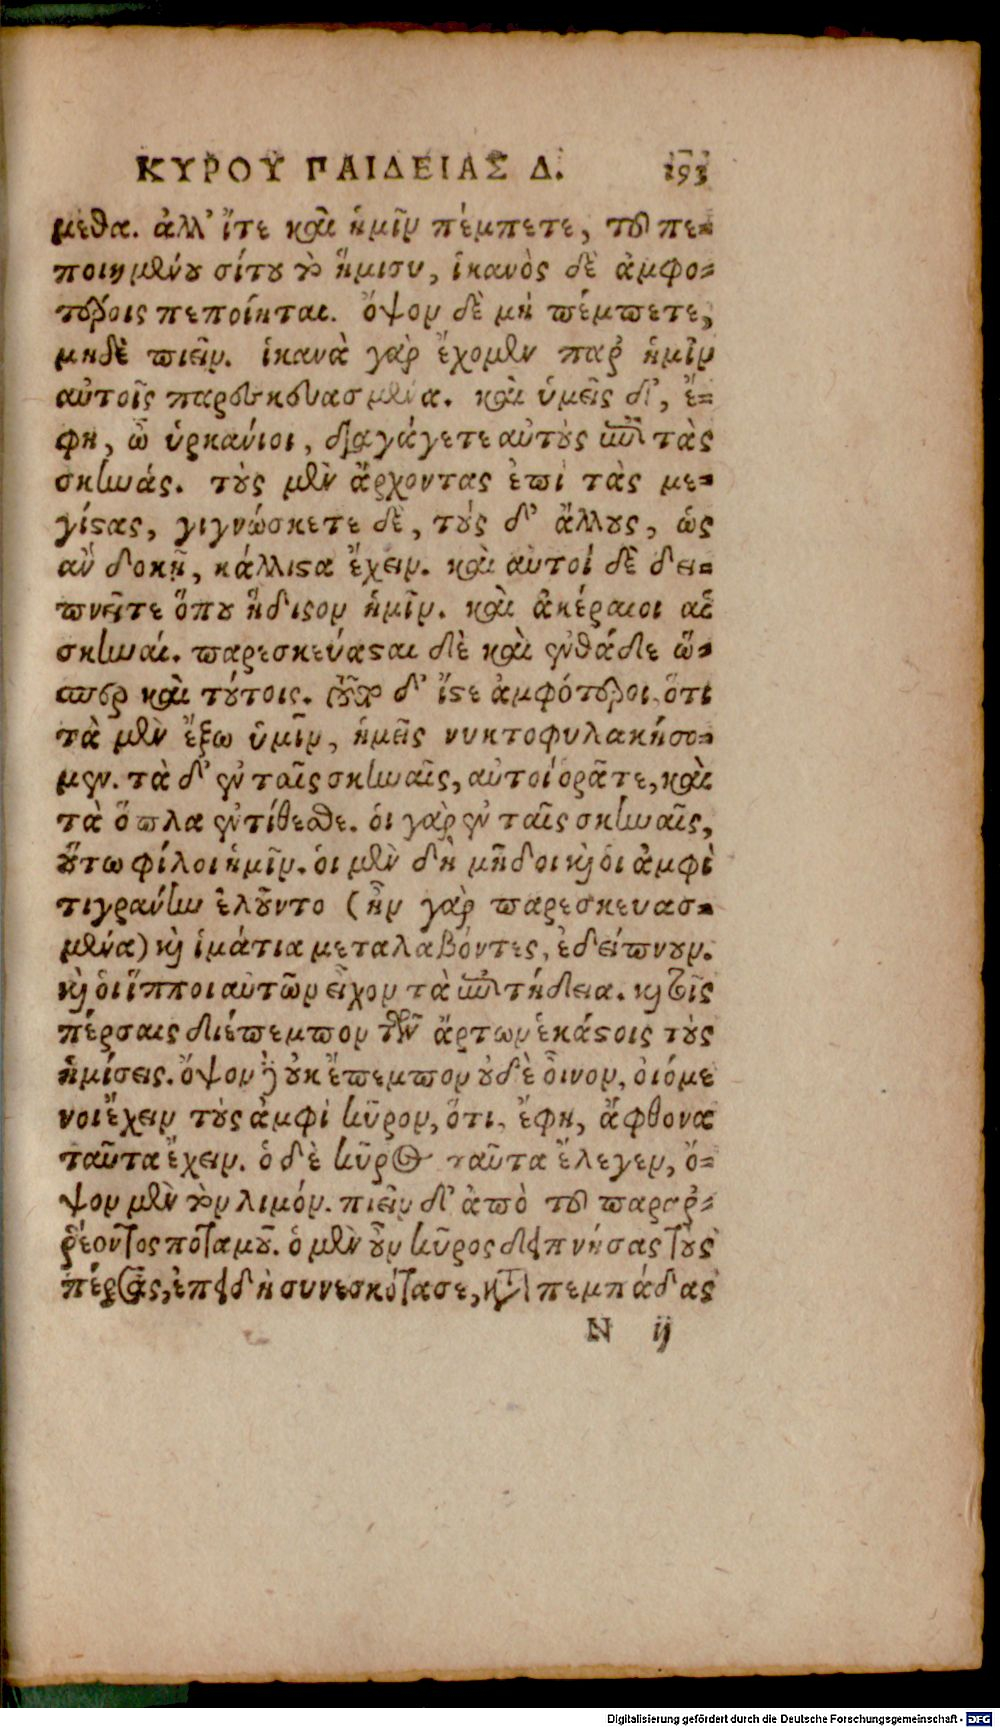 ΚΥΡΟΥ ΠΑΙΔΕΙΑΣ Δ. 193
μεθα. ἀλλ' ἴτε καὶ ἡμῖν πέμπετε, τοῦ πε-
ποιημένου σίτου τὸ ἥμισυ, ἱκανὸς δὲ ἀμφο-
τέροις πεποίηται. ὄψον δὲ μὴ πέμπετε,
μηδὲ πιεῖν. ἱκανὰ γὰρ ἔχομεν παρ' ἡμῖν
αὐτοῖς παρεσκευασμένα. καὶ ὑμεῖς δ', ἔ-
φη, ὦ ὑρκάνιοι, διαγάγετε αὐτοὺς ἐπὶ τὰς
σκηνάς. τοὺς μὲν ἄρχοντας ἐπὶ τὰς με-
γίστας, γιγνώσκετε δὲ, τοὺς δ' ἄλλους, ὡς
ἂν δοκῇ, κάλλιστα ἔχειν. καὶ αὐτοὶ δὲ δει-
πνεῖτε ὅπου ἥδιστον ἡμῖν. καὶ ἀκέραιοι αἱ
σκηναί. παρεσκεύασται δὲ καὶ ἐνθάδε ὥ-
σπερ καὶ τούτοις. δ' ἴστε ἀμφότεροι, ὅτι
τὰ μὲν ἔξω ὑμῖν, ἡμεῖς νυκτοφυλακήσο-
μεν. τὰ δ' ἐν ταῖς σκηναῖς, αὐτοὶ ὁρᾶτε, καὶ
τὰ ὅπλα ἐντίθεσθε. οἱ γὰρ ἐν ταῖς σκηναῖς,
οὔτω φίλοι ἡμῖν. οἱ μὲν δὴ μῆδοι καὶ οἱ ἀμφὶ
τιγράνην ἐλοῦντο (ἦν γὰρ παρεσκευασ-
μένα) καὶ ἱμάτια μεταλαβόντες, ἐδείπνουν.
καὶ οἱ ἵπποι αὐτῶν εἶχον τὰ ἐπιτήδεια. καὶ τοῖς
πέρσαις διέπεμπον τῶν ἄρτων ἑκάστοις τοὺς
ἡμίσεις. ὄψον δὲ οὐκ ἔπεμπον οὐδὲ οἶνον, οἰόμε
νοι ἔχειν τοὺς ἀμφὶ κῦρον, ὅτι, ἔφη, ἄφθονα
ταῦτα ἔχειν. ὁ δὲ κῦρος ταῦτα ἔλεγεν, ὄ-
ψον μὲν τὸν λιμόν. πιεῖν δ' ἀπὸ τοῦ παραρ-
ρέοντος ποταμοῦ. ὁ μὲν οὖν κῦρος δειπνήσας τοὺς
πέρσας, ἐπειδὴ συνεσκότασε, κατὰ πεμπάδας
N ij
Digitalisierung gefördert durch die Deutsche Forschungsgemeinschaft - DFG